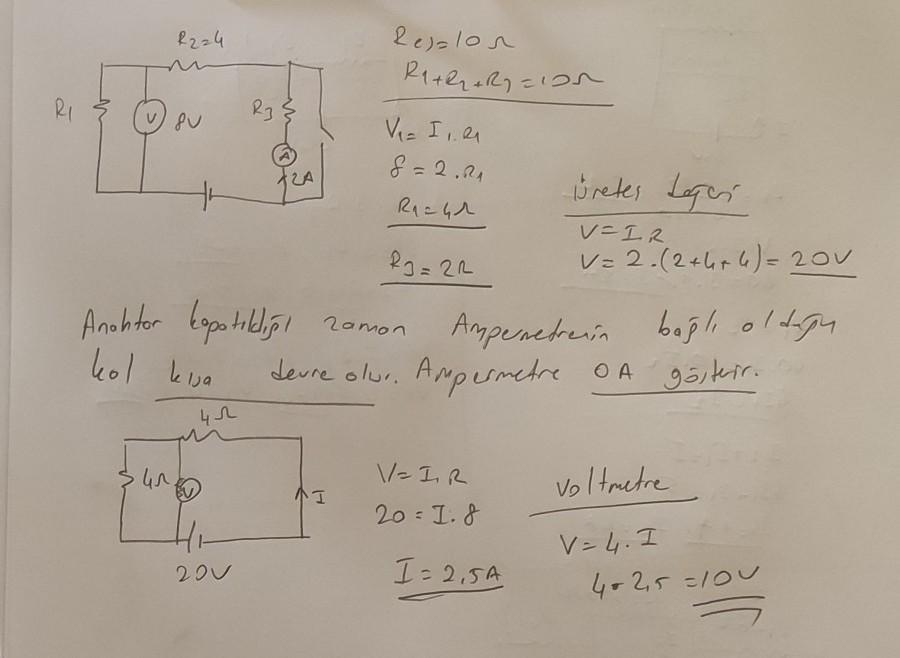 R2=4
R1
V
8V
R3
A
2A
Reş=10Ω
R1+R2+R3=10Ω
V1= I.R1
8=2.R1
R1=4Ω
R3=2Ω
üreteç değeri
V=I.R
V= 2.(2+4+4)= 20V
Anahtar kapatıldığı zaman Ampermetrenin bağlı olduğu
kol kısa devre olur. Ampermetre 0A gösterir.
4Ω
4Ω
V
I
20V
V= I.R
20=I.8
I=2,5A
Voltmetre
V=4.I
4.2,5=10V